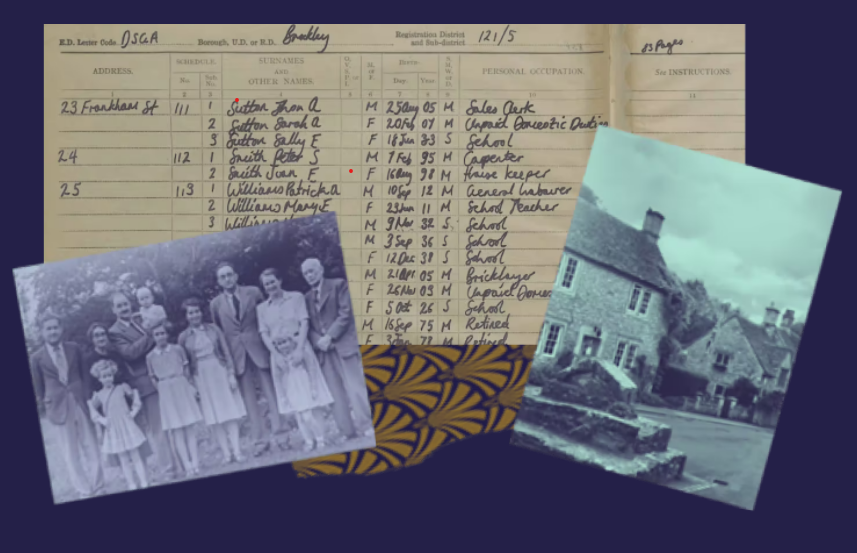 E.D. Letter Code DSGA Borough, U.D. or R.D. Brockley Registration District and Sub-district 121/5
83 Pages
ADDRESS. SCHEDULE. SURNAMES AND OTHER NAMES. M. or F. Birth— PERSONAL OCCUPATION. See INSTRUCTIONS.
No. Sub. No. Day Year
1 2 3 4 5 6 7 8 9 10 11
23 Frankham St 111 1 Sutton Jhon A M 25 Aug 05 M Sales Clerk
2 Sutton Sarah A F 20 Feb 07 M Unpaid Domestic Duties
3 Sutton Sally E F 18 Jun 33 S School
24 112 1 Smith Peter S M 7 Feb 95 M Carpenter
2 Smith Joan F F 16 Aug 98 M House keeper
25 113 1 Williams Patrick A M 10 Sep 12 M General Labourer
2 Williams Mary E F 23 Jun 11 M School Teacher
3 Williams M 9 Nov 32 S School
M 3 Sep 36 S School
F 12 Dec 38 S School
M 21 Apr 05 M Bricklayer
F 26 Nov 09 M Unpaid
F 5 Oct 26 S School
M 16 Sep 75 M Retired
F 3 Jan 78 M Retired